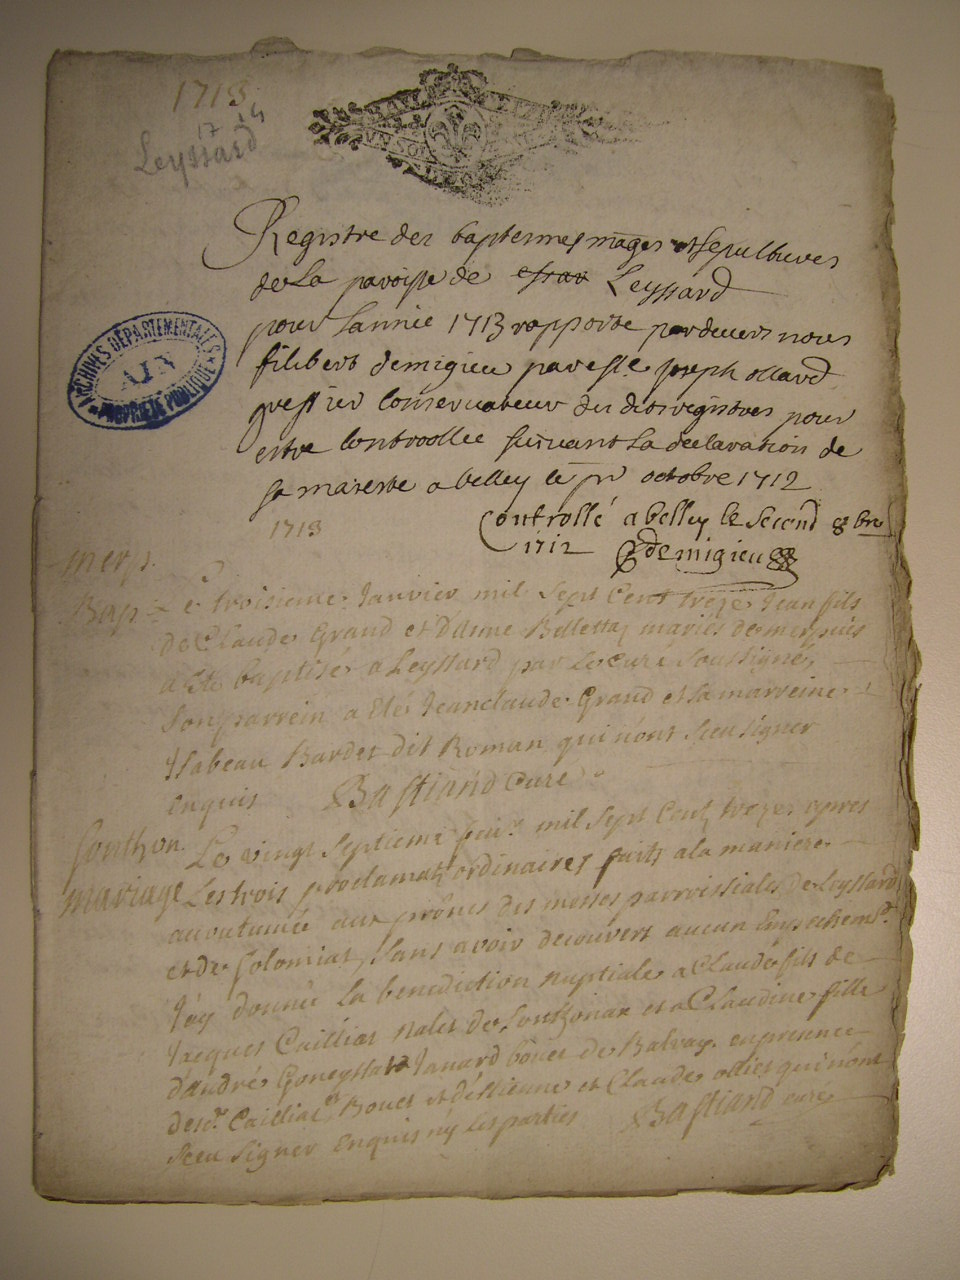 1713
17 14
Leyssard
ARCHIVES DÉPARTEMENTALES
AIN
PROPRIÉTÉ PUBLIQUE
Registre des baptesmes mages et sepultures
de La paroisse de Leyssard
pour Lannée 1713 rapporte pardevers nous
filibert demigieu par esse Joseph ollard
greffier Conservateur des dits registres pour
estre Controollee suivant La declaration de
sa maieste a belley le pr octobre 1712
Controllé a belley le second 8bre
1712 demigieu
1713
merp.
Bap Le troisieme Janvier mil sept Cent treze Jean fils
de Claude Grand et d'Anne Bellettaz mariés de merpuis
a été baptisé a Leyssard par Le Curé soussigné,
son parrein a Eté Jeanclaude Grand et sa marreine
Isabeau Bardet dit Roman qui n'ont sceu signer
enquis Bastiand Curé
sonthon. Le vingt septieme feuv. mil sept Cent treze apres
mariage Les trois proclamat. ordinaires faits a la maniere
acoutumée aux prônes des messes parroissiales de Leyssard
et de solomiat, sans avoir decouvert aucun Empechemt.
J'ay donné La benediction nuptiale a Claude fils de
Jacques Cailliat Nalet de sonthonax et a Claudine fille
d'andré Goneyssard Janard bouet de Balvay. en presence
desd. Cailliat, Bouet et d'Estienne et Claude olliet qui n'ont
sceu signer Enquis ny Les parties Bastiand curé